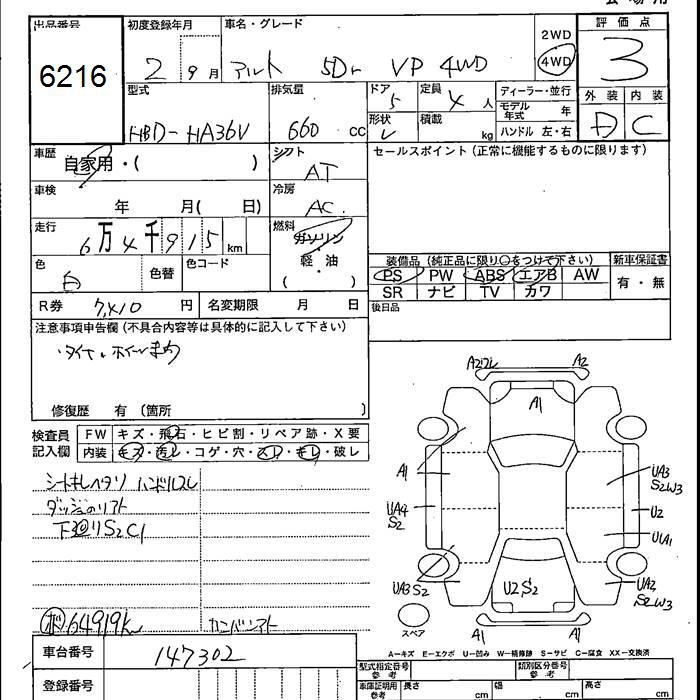 出品番号
6216
初度登録年月
2 9月
車名・グレード
アルト 5Dr VP 4WD
2WD
4WD
評価点
3
外装 内装
D C
型式
HBD-HA36V
排気量
660 cc
ドア
5
定員
4 人
形状
V
積載
kg
ディーラー・並行
モデル年式 年
ハンドル 左・右
車歴
自家用・( )
シフト
AT
セールスポイント(正常に機能するものに限ります)
車検
年 月( 日)
冷房
AC
走行
6万4千915km
燃料
ガソリン
軽・油
( ・ )
色
白
色替
色コード
装備品(純正品に限り○をつけて下さい)
新車保証書
PS PW ABS エアB AW
SR ナビ TV カワ
有・無
R券 7,410 円
名変期限 月 日
後日品
注意事項申告欄(不具合内容等は具体的に記入して下さい)
・タイヤ、ホイール
修復歴 有(箇所 )
検査員
記入欄
FW キズ・飛石・ヒビ割・リペア跡・X要
内装 キズ・汚レ・コゲ・穴・スレ・キレ・破レ
シートキレヘタリ ハンドルスレ
下廻りS2C1
64919K
車台番号 147302
登録番号
A2 A2
A1
A1
UA3
S2W3
UA4
S2
U2
UA1
UA3S2
U2S2
UA2
S2W3
スペア
A1 A1
A-キズ E-エクボ U-凹み W-補修跡 S-サビ C-腐食 XX-交換済
型式指定番号
類別区分番号
車庫証明用
長さ cm 幅 cm 高さ cm